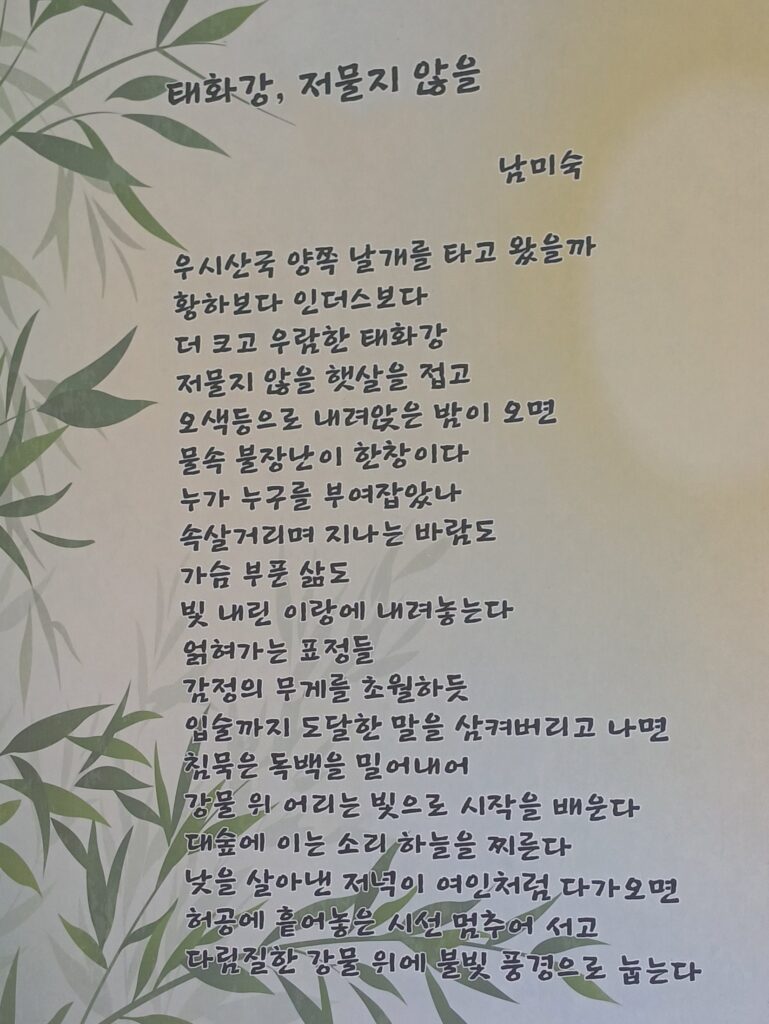 태화강, 저물지 않을
남미숙
우시산국 양쪽 날개를 타고 왔을까
황하보다 인더스보다
더 크고 우람한 태화강
저물지 않을 햇살을 접고
오색등으로 내려앉은 밤이 오면
물속 불장난이 한창이다
누가 누구를 부여잡았나
속살거리며 지나는 바람도
가슴 부푼 삶도
빛 내린 이랑에 내려놓는다
얽혀가는 표정들
감정의 무게를 초월하듯
입술까지 도달한 말을 삼켜버리고 나면
침묵은 독백을 밀어내어
강물 위 어리는 빛으로 시작을 배운다
대숲에 이는 소리 하늘을 찌른다
낮을 살아낸 저녁이 여인처럼 다가오면
허공에 흩어놓은 시선 멈추어 서고
다림질한 강물 위에 불빛 풍경으로 눕는다